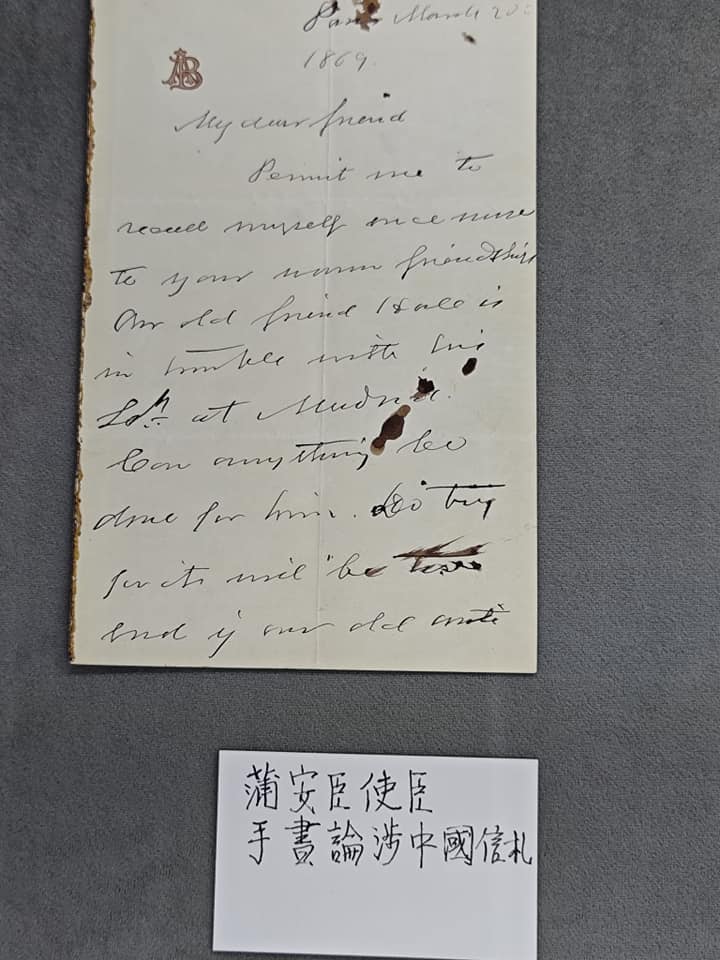 AB
Paris March 20
1869.
My dear friend
Permit me to
recall myself once more
to your warm friendship
Our old friend Hale is
in trouble with his
at Madrid.
Can anything be
done for him. Do try
for it will be
if our old anti
蒲安臣使臣
手書論涉中國信札